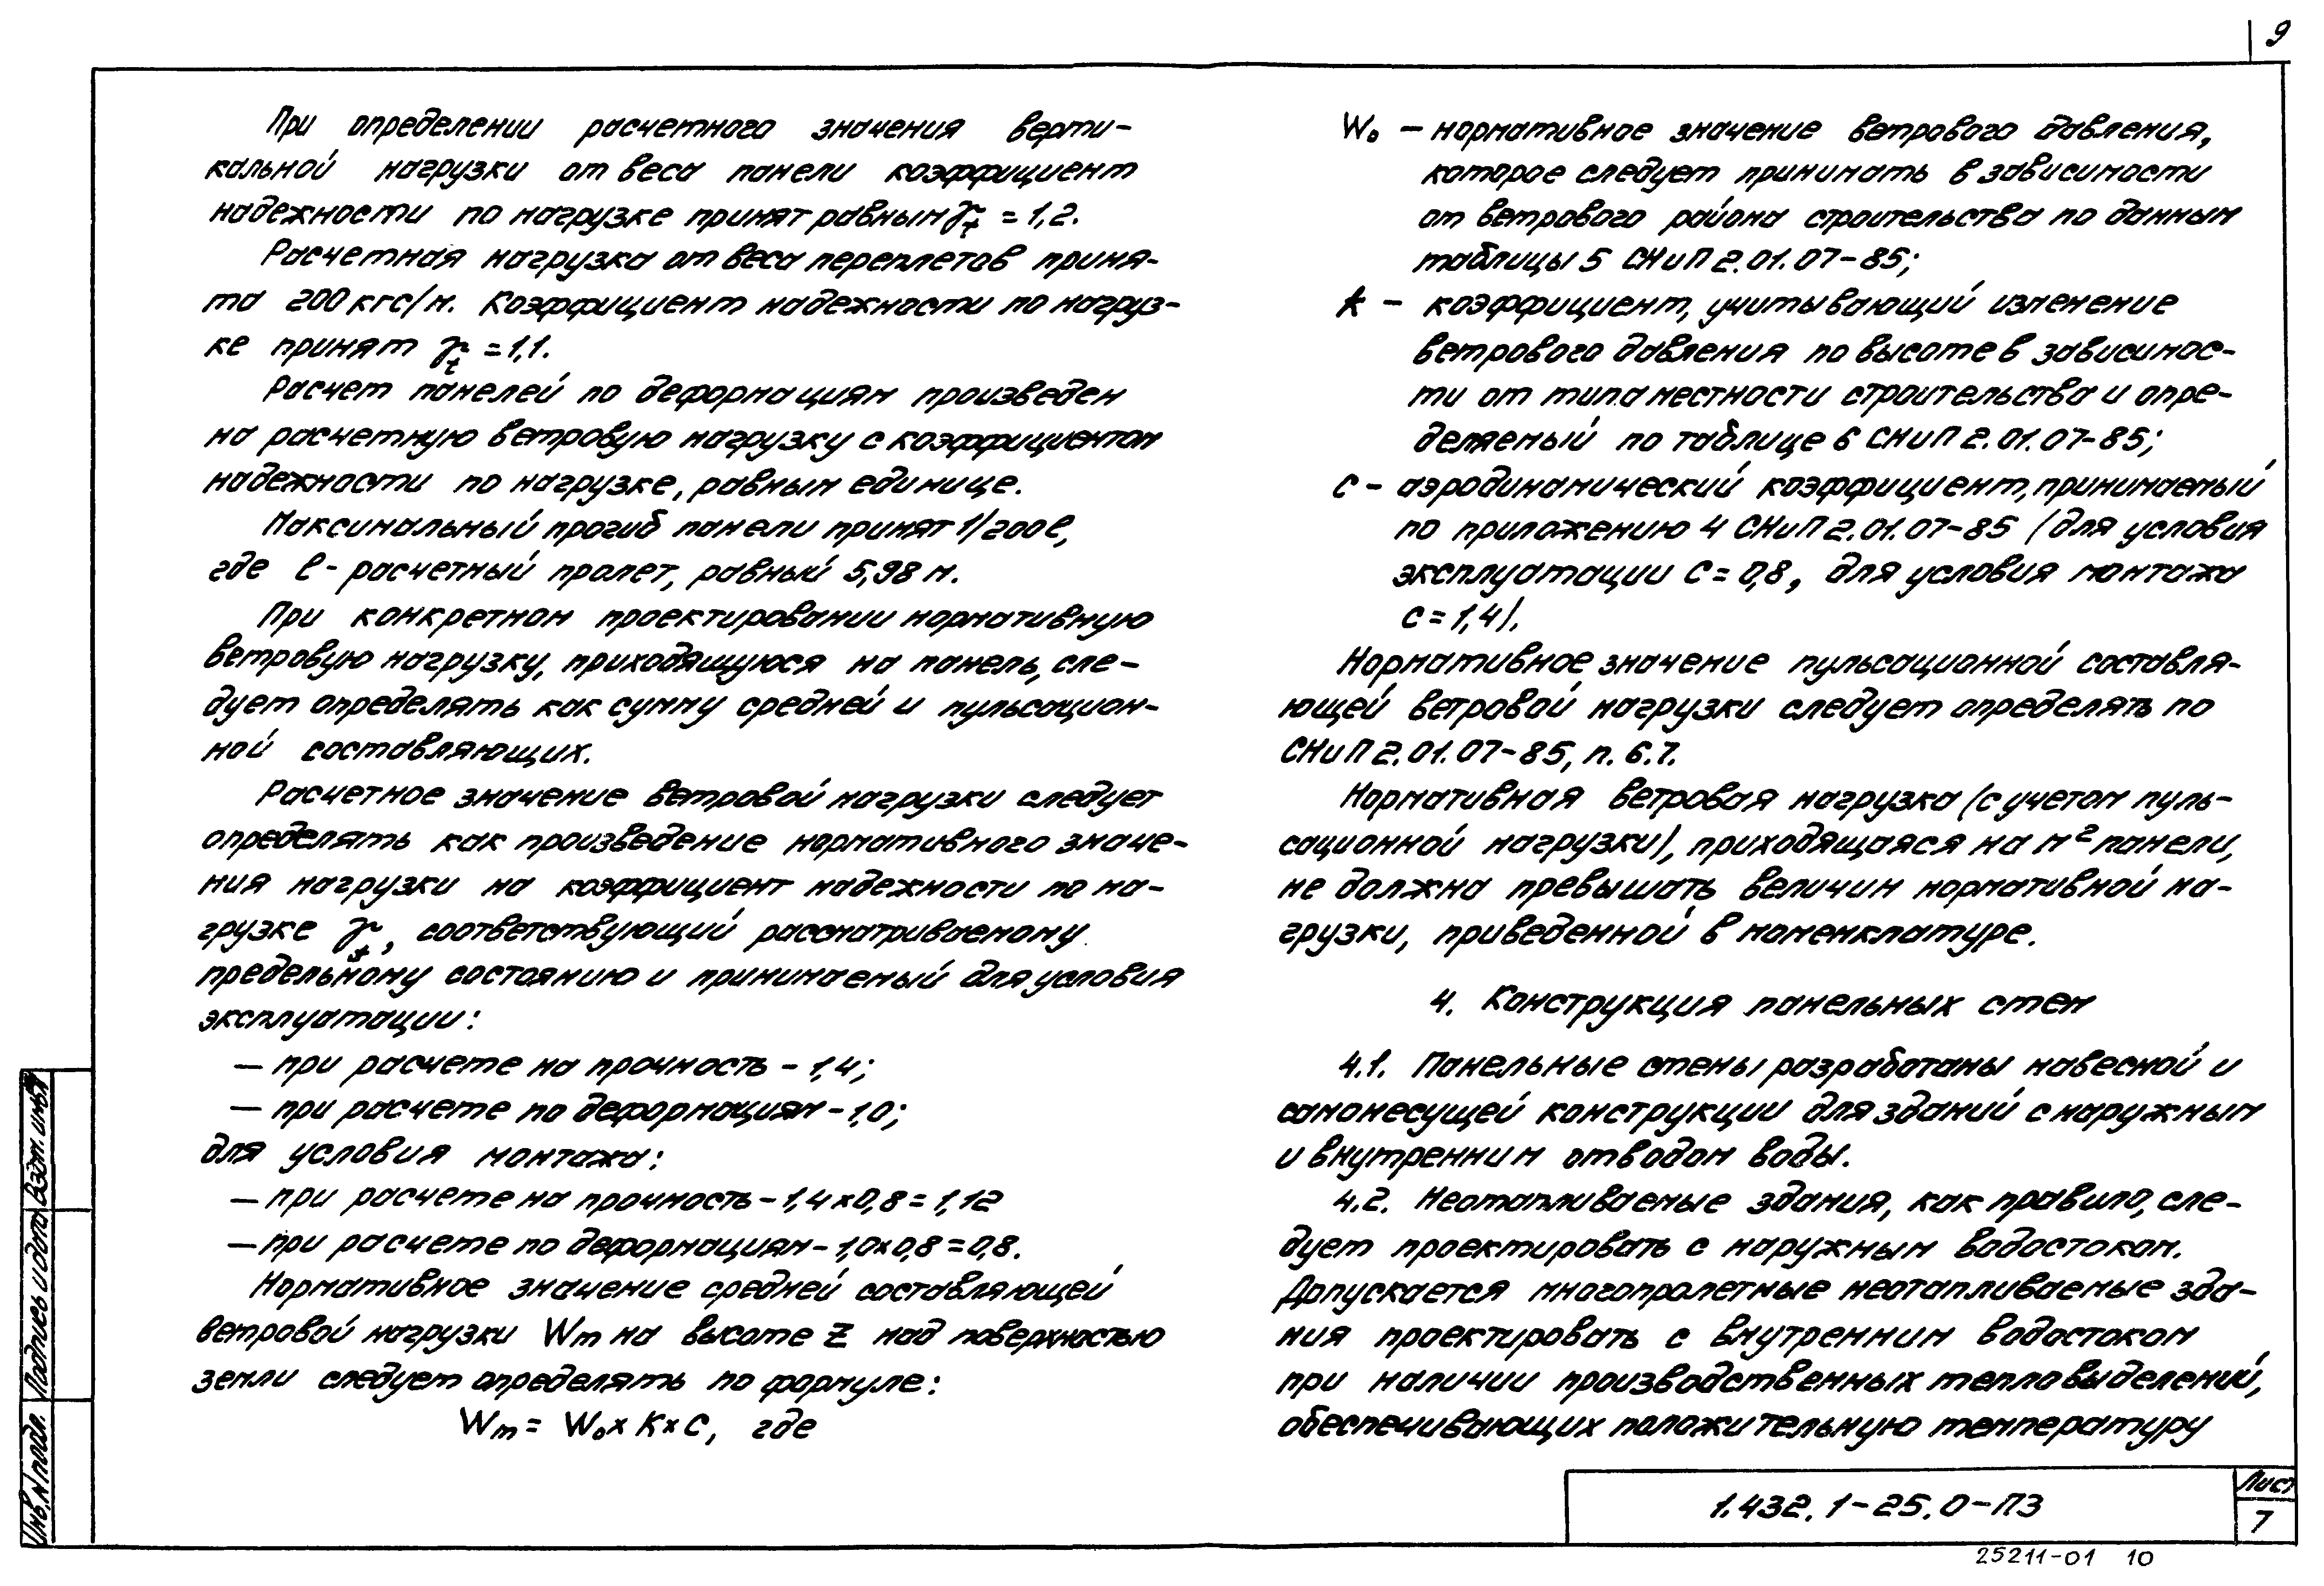 9
При определении расчетного значения верти-
кальной нагрузки от веса панели коэффициент
надежности по нагрузке принят равным γt = 1,2.
Расчетная нагрузка от веса переплетов приня-
та 200 кгс/м. Коэффициент надежности по нагруз-
ке принят γt = 1,1.
Расчет панелей по деформациям произведен
на расчетную ветровую нагрузку с коэффициентом
надежности по нагрузке, равным единице.
Максимальный прогиб панели принят 1/200 l,
где l - расчетный пролет, равный 5,98 м.
При конкретном проектировании нормативную
ветровую нагрузку, приходящуюся на панель, сле-
дует определять как сумму средней и пульсацион-
ной составляющих.
Расчетное значение ветровой нагрузки следует
определять как произведение нормативного значе-
ния нагрузки на коэффициент надежности по на-
грузке γt, соответствующий рассматриваемому
предельному состоянию и принимаемый для условия
эксплуатации:
— при расчете на прочность - 1,4;
— при расчете по деформациям - 1,0;
для условия монтажа:
— при расчете на прочность - 1,4×0,8 = 1,12
— при расчете по деформациям - 1,0×0,8 = 0,8.
Нормативное значение средней составляющей
ветровой нагрузки Wm на высоте Z над поверхностью
земли следует определять по формуле:
Wm = Wo × K × C, где
Wo - нормативное значение ветрового давления,
которое следует принимать в зависимости
от ветрового района строительства по данным
таблицы 5 СНиП 2.01.07-85;
k - коэффициент, учитывающий изменение
ветрового давления по высоте в зависимос-
ти от типа местности строительства и опре-
деляемый по таблице 6 СНиП 2.01.07-85;
с - аэродинамический коэффициент, принимаемый
по приложению 4 СНиП 2.01.07-85 (для условия
эксплуатации С = 0,8, для условия монтажа
С = 1,4).
Нормативное значение пульсационной составля-
ющей ветровой нагрузки следует определять по
СНиП 2.01.07-85, п. 6.7.
Нормативная ветровая нагрузка (с учетом пуль-
сационной нагрузки), приходящаяся на м² панели,
не должна превышать величин нормативной на-
грузки, приведенной в номенклатуре.
4. Конструкция панельных стен
4.1. Панельные стены разработаны навесной и
самонесущей конструкции для зданий с наружным
и внутренним отводом воды.
4.2. Неотапливаемые здания, как правило, сле-
дует проектировать с наружным водостоком.
Допускается многопролетные неотапливаемые зда-
ния проектировать с внутренним водостоком
при наличии производственных тепловыделений,
обеспечивающих положительную температуру
Инв.N подл. Подпись и дата Взам. инв.N
1.432.1-25.0-ПЗ
Лист
7
25211-01 10